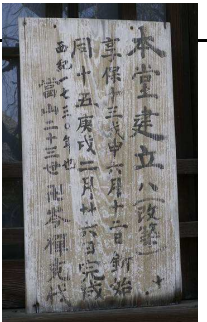 本堂建立八(改築)
享保十三戊申六月十二日釿始
同十五庚戌二月廿六日完成
西紀一七三〇年也
當山二十三世